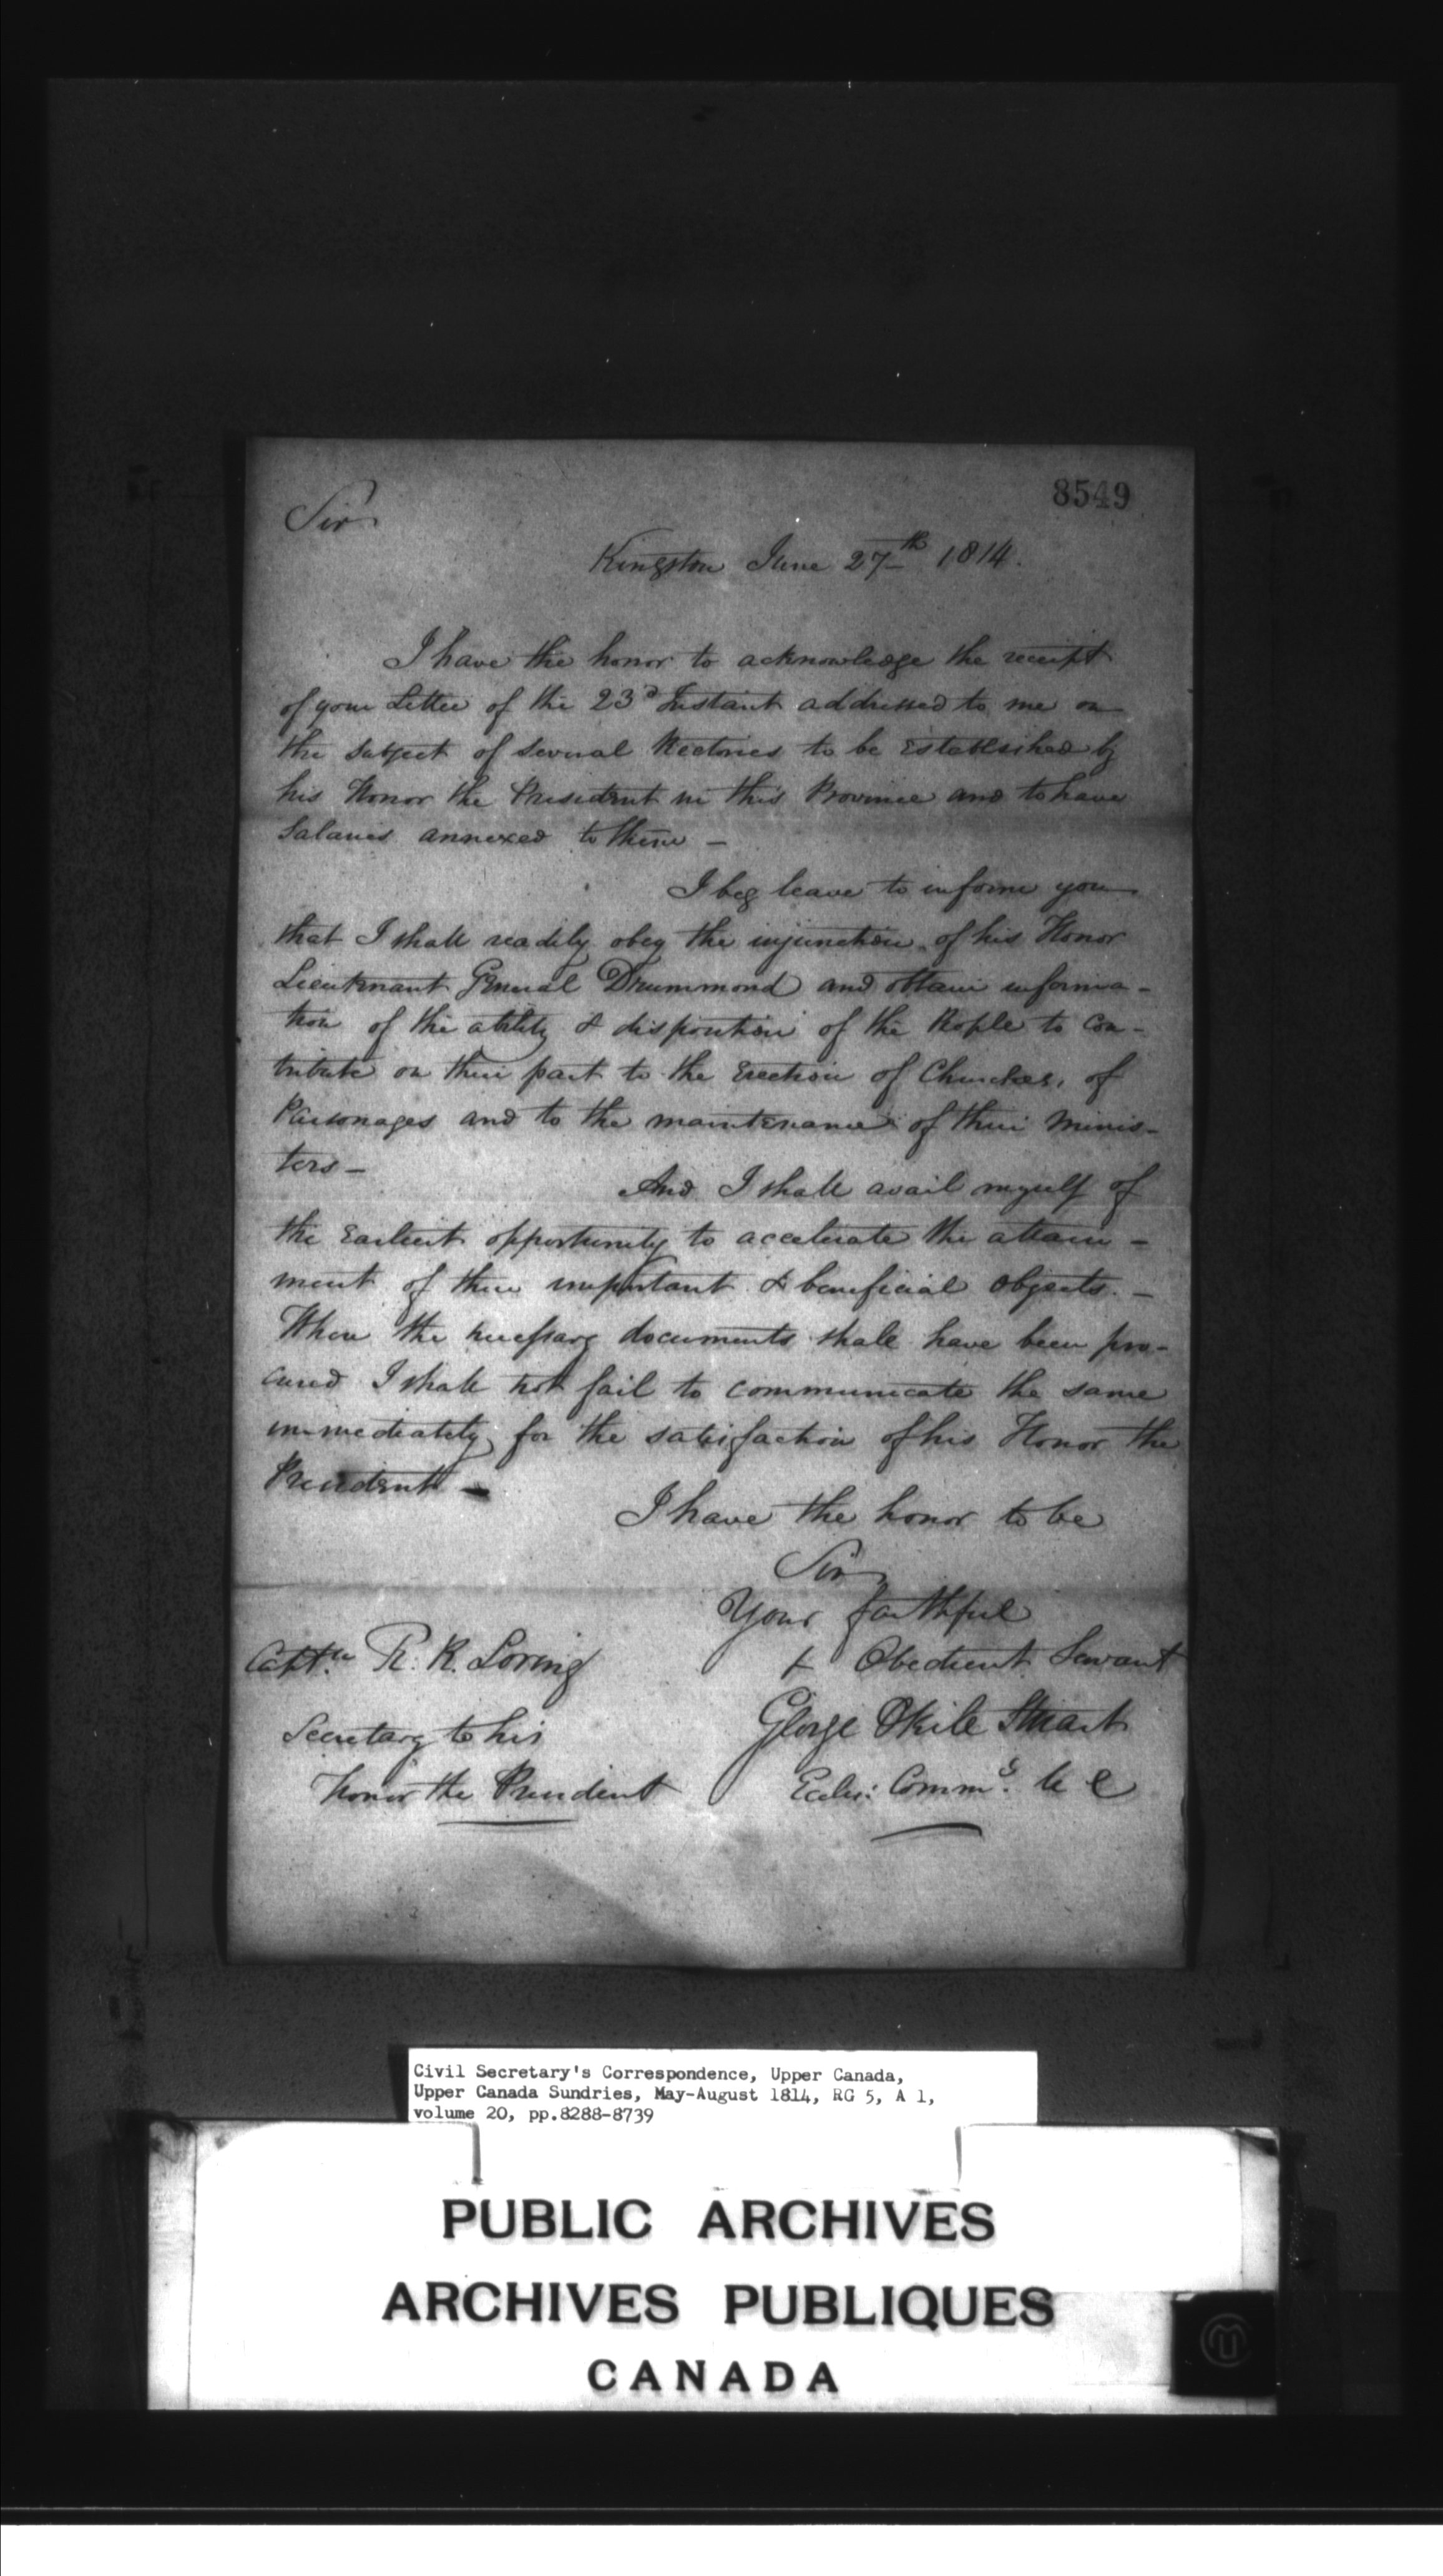 8549
Sir
Kingston June 27th 1814.
I have the honor to acknowledge the receipt
of your Letter of the 23d Instant addressed to me on
the Subject of several Rectories to be established by
his Honor the President in this Province and to have
Salaries annexed to them –
I beg leave to inform you
that I shall readily obey the injunction of his Honor
Lieutenant General Drummond and obtain informa-
tion of the ability & disposition of the People to con-
tribute on their part to the Erection of Churches, of
Parsonages and to the maintenance of their Minis-
ters –
And I shall avail myself of
the Earliest opportunity to accelerate the attain-
ment of these important & beneficial objects. –
When the necessary documents shall have been pro-
cured I shall not fail to communicate the same
immediately for the satisfaction of his Honor the
President –
I have the honor to be
Sir
Your faithful
& Obedient Servant
George Okile Stuart
Eccles: Commy. U C
Captn. R. R. Loring
Secretary to his
Honor the President
Civil Secretary's Correspondence, Upper Canada,
Upper Canada Sundries, May-August 1814, RG 5, A 1,
volume 20, pp.8288-8739
PUBLIC ARCHIVES
ARCHIVES PUBLIQUES
CANADA